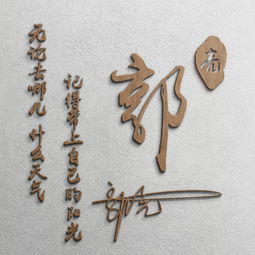 无论去哪儿 什么天气
记得带上自己的阳光
郭
亮
郭亮